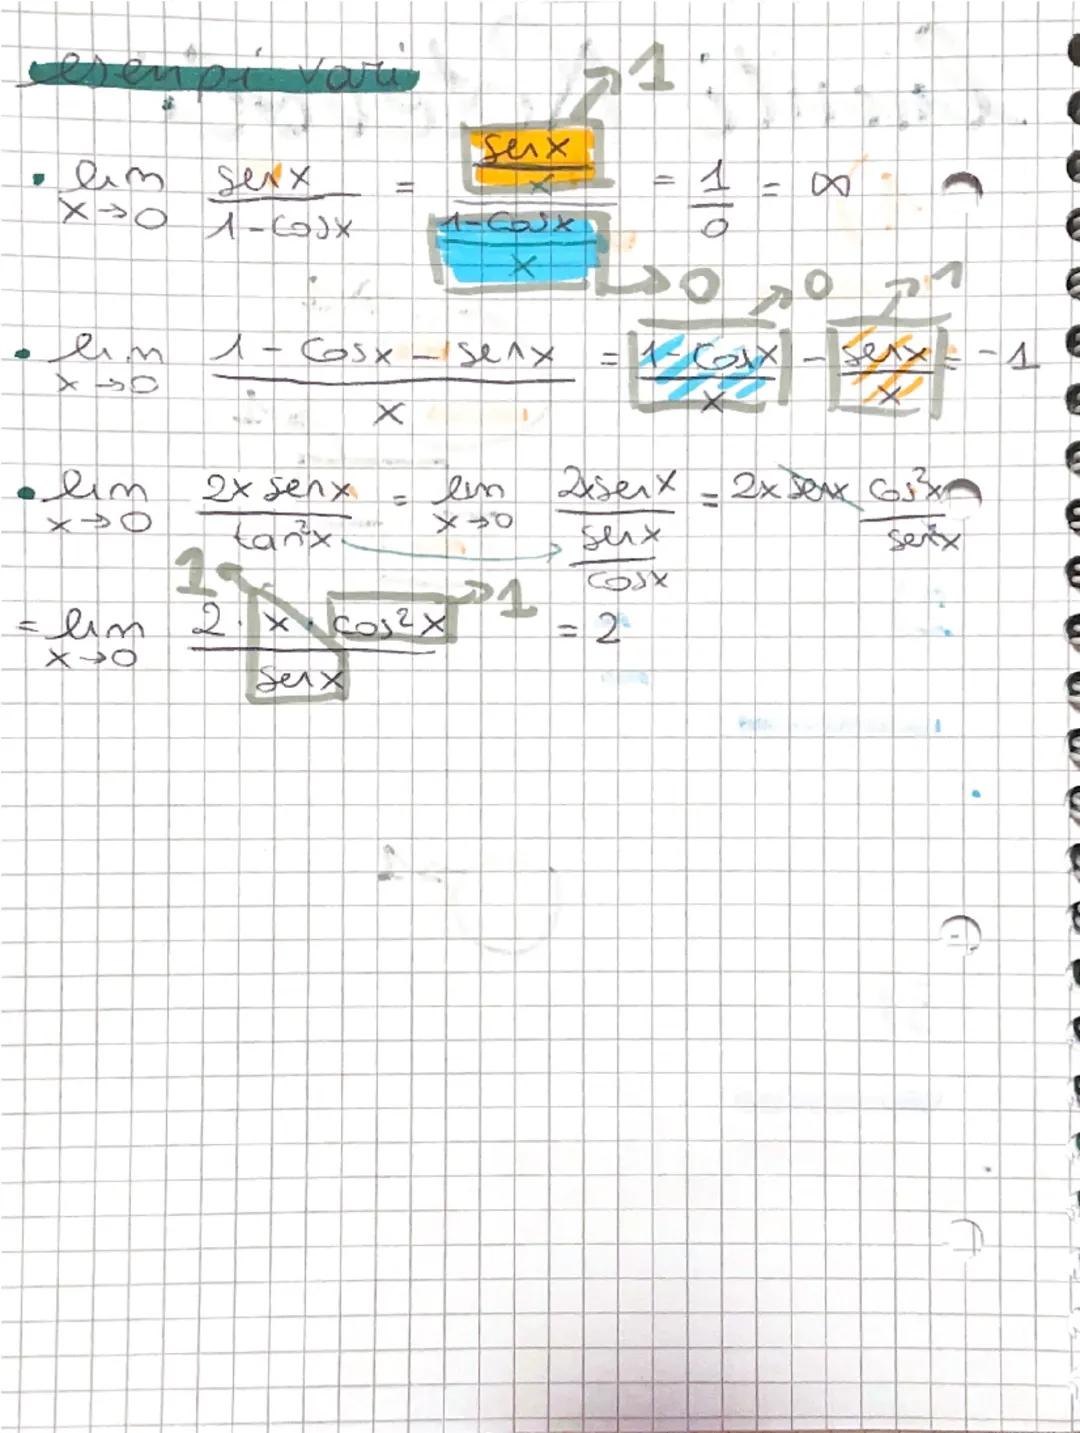 esempi vari
• lim x→0 senx / 1-cosx = (senx / x → 1) / (1-cosx / x → 0) = 1/0 = ∞
• lim x→0 1 - cosx - senx / x = 1-cosx / x → 0 - senx / x → 1 = -1
• lim x→0 2x senx / tan²x = lim x→0 2xsenx / (senx / cosx) = 2x senx cos²x / sen²x
= lim x→0 2 · x · cos²x / senx = 2
1 1